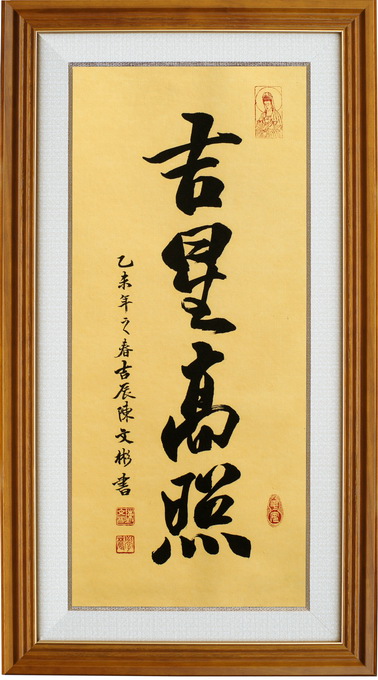 吉星高照
乙未年之春古辰陳文彬書